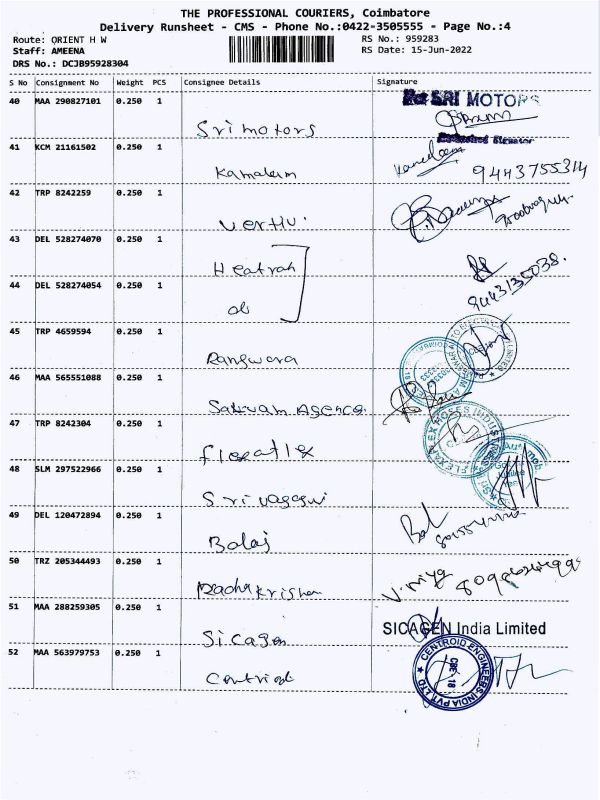 THE PROFESSIONAL COURIERS, Coimbatore
Delivery Runsheet - CMS - Phone No.:0422-3505555 - Page No.:4
Route: ORIENT H W RS No.: 959283
Staff: AMEENA RS Date: 15-Jun-2022
DRS No.: DCJB95928304
S No Consignment No Weight PCS Consignee Details Signature
40 MAA 290827101 0.250 1
SRI MOTORS
Sri motors
41 KCM 21161502 0.250 1
Kamalam 9443755314
42 TRP 8242259 0.250 1
Verthi.
43 DEL 528274070 0.250 1
Heatrah
44 DEL 528274054 0.250 1
do 9443135038.
45 TRP 4659594 0.250 1
Rangwara
46 MAA 565551088 0.250 1
Satevam Agence
47 TRP 8242304 0.250 1
flexaflex
48 SLM 297522966 0.250 1
49 DEL 120472894 0.250 1
Balaj
50 TRZ 205344493 0.250 1
Radha Krishan V. Priya
51 MAA 288259305 0.250 1
SICAGEN India Limited
Sicagen
52 MAA 563979753 0.250 1
CENTROID ENGINEERS INDIA PVT LTD
CBE 18
Centriod